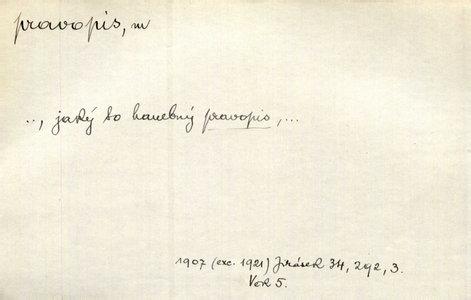 pravopis, m
.., jaký to hanebný pravopis, ...
1907 (exc. 1921) Jirásek 34, 292, 3.
Vek 5.